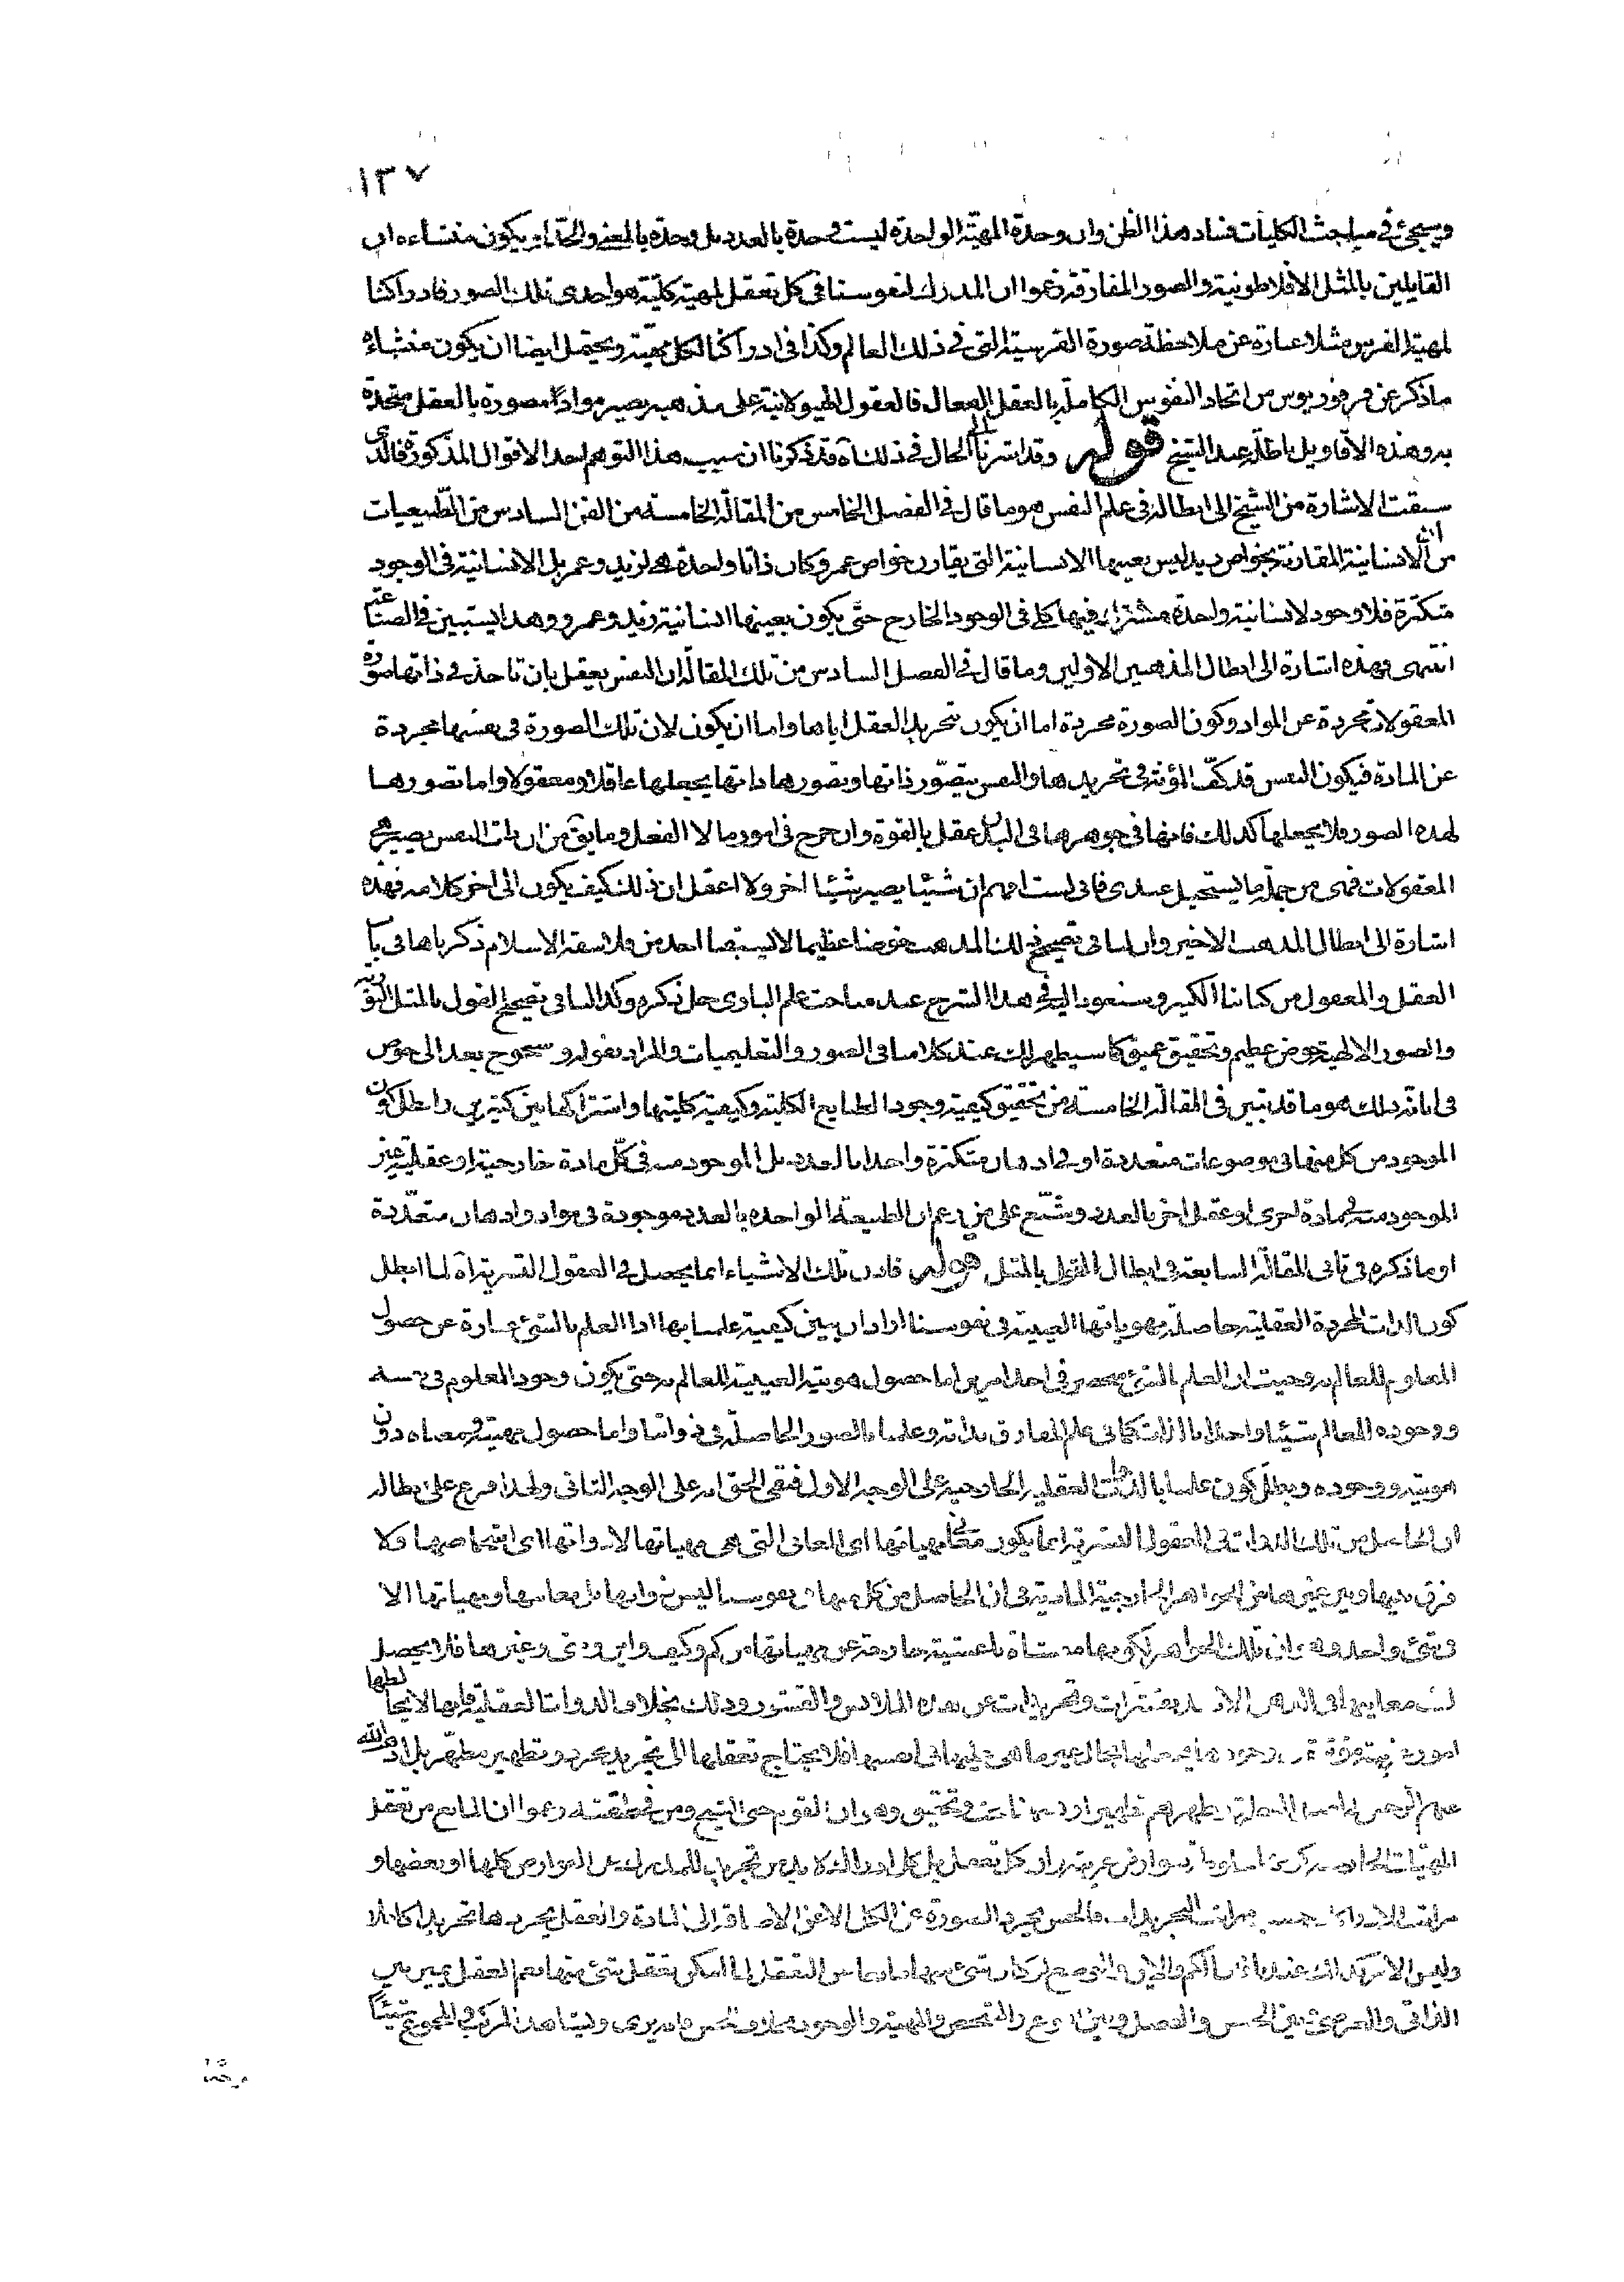 ١٣٧
وسيجئ في مباحث الكليات فساد هذا الظن وان وحدة المهيّة الواحدة ليست وحدة بالعدد بل وحدة بالمعنى والحدّ او يكون منشاءه ان
القايلين بالمثل الافلاطونية والصور المفارقة زعموا ان المدرك لنفوسنا في كل تعقل لمهية كلية هو احدى تلك الصور فادراكنا
لمهية الفرس مثلا عبارة عن ملاحظة صورة الفرسية التى في ذلك العالم وكذا في ادراكنا لكل مهيّة ويحتمل ايضا ان يكون منشاءه
ما ذكر عن فرفوريوس من اتحاد النفوس الكاملة بالعقل الفعال فالعقول الهيولانية على مذهبه يصير موادا مصورة بالعقل متحدة
به وهذه الاقاويل باطلة عند الشيخ قوله وقد اشرنا الى الحال في ذلك آه قد ذكرنا ان سبب هذا التوهم احد الاقوال المذكورة فالذى
سبقت الاشارة من الشيخ الى ابطاله في علم النفس هو ما قال في الفصل الخامس من المقالة الخامسة من الفن السادس من الطّبيعيات
من ان الانسانية المقارنة بخواص زيد ليس بعينها الانسانية التى يقارن خواص عمرو كان ذاتا واحدة هى لزيد وعمر بل الانسانية في الوجود
متكثرة فلا وجود لانسانية واحدة مشترك فيها كلى في الوجود الخارج حتّى يكون بعينها انسانية زيد وعمرو وهذا يستبين في الصناعة
انتهى وهذه اشارة الى ابطال المذهبين الاولين وما قال في الفصل السادس من تلك المقالة ان النفس يعقل بان تاخذ في ذاتها صورة
المعقولات مجردة عن المواد وكون الصورة مجردة اما ان يكون بتجريد العقل اياها واما ان يكون لان تلك الصورة في نفسها مجردة
عن المادة فيكون النفس قد كفّ المؤنة في تجريدها والنفس يتصوّر ذاتها وتصورها ذاتها يجعلها عاقلا ومعقولا واما تصورها
لهذه الصور فلا يجعلها كذلك فانها في جوهرها في البدن عقل بالقوة وان خرج في امور ما لا الفعل وما يق من ان ذات النفس يصير هى
المعقولات فهى من جملة ما يستحيل عندى فانى لست افهم ان شيئا يصير شيئا اخر ولا اعقل ان ذلك كيف يكون الى اخر كلامه فهذه
اشارة الى ابطال المذهب الاخير وان لنا في تصحيح ذلك المذهب خوضا عظيما لا احد من فلاسفة الاسلام ذكرناها في باب
العقل والمعقول من كتابنا الكبير وسنعود اليه في هذا الشرح عند مباحث علم البارى جل ذكره وكذا لنا في تصحيح القول بالمثل النورية
والصور الالهية خوض عظيم وتحقيق عميق كما سيظهر لك عند كلامنا في الصور والتعليميات والمراد بقوله وسنحوج بعد الى خوض
في ابانة ذلك هو ما قد تبين في المقالة الخامسة من تحقيق كيفية وجود الطبايع الكلية وكيفية كليتها واشتراكها بين كثيرين وابطل كون
الموجود من كل منها في موضوعات متعددة او في اذهان متكثرة واحدا بالعدد بل الموجود منه في كلّ مادة خارجية او عقلية غير
الموجود منه في مادة اخرى او عقل اخر بالعدد ويشنّع على من زعم ان الطبيعة الواحدة بالعدد موجودة في مواد واذهان متعدّدة
او ما ذكره في ثانى المقالة السابعة في ابطال القول بالمثل قوله فاذن تلك الاشياء انما يحصل في العقول البشرية آه لما ابطل
كون الذات المجردة العقلية حاصلة بهوياتها العينية في نفوسنا اراد ان يبين كيفية علمنا بها اذ العلم بالشئ عبارة عن حصول
المعلوم للعالم به وحيث ان العلم بالشئ منحصر في احد امرين اما حصول هويته العينية للعالم به حتى يكون وجود المعلوم في نفسه
ووجوده للعالم شيئا واحدا بالذات كما في علم المفارق بذاته وعلمنا بالصور الحاصلة في ذواتنا واما حصول مهيته ومعناه دون
هويته ووجوده وبطل كون علمنا بالذوات العقلية الخارجية على الوجه الاول فبقى الحق انه على الوجه الثانى ولهذا فرع على بطاله
ان الحاصل من تلك الذوات في العقول البشرية انما يكون معانى مهياتها اى المعانى التى هى مهياتها لا ذواتها اى اشخاصها ولا
فرق بينها وبين غيرها من الجواهر الخارجية المادية في ان الحاصل من كل منها في نفوسنا ليس ذواتها بل معانيها ومهياتها الا
في شئ واحد وهو ان تلك الجواهر لكونها خارجة عن مهياتها من كم وكيف واين ووضع وغيرها فلا يحصل
معانيها في الذهن الا بعد وتجريدات عن هذه الملابس والقشور وذلك بخلاف الذوات العقلية فانها لا يخالطها
امور غريبة وجودها يجعلها بحال غير ما هى عليها في نفسها فلا يحتاج تعقلها الى تجريد مجرد وتطهير مطهّر بل
عنهم الرجس تطهيرا وهيهنا بحث وتحقيق وهو ان القوم حتى الشيخ ومن في طبقته زعموا ان المانع من تعقل
المهيات بعوارض غريبة وان كل تعقل بل كل ادراك لا بد من تجريد للمدرك عن العوارض كلها او بعضها و
مراتب الادراكات مراتب التجريدات فالحس يجرد الصورة عن الكل لا عن الاضافة الى المادة والعقل يجردها تجريدا كاملا
وليس الامر كذلك عندنا الكم والاين والوضع لو كان شئ منها مانعا من التعقل لما امكن تعقل شئ منها نعم العقل يميز بين
الذاتى والعرضى وبين الجنس والفصل وبين النوع والتشخص والمهية والوجود بخلاف الحس